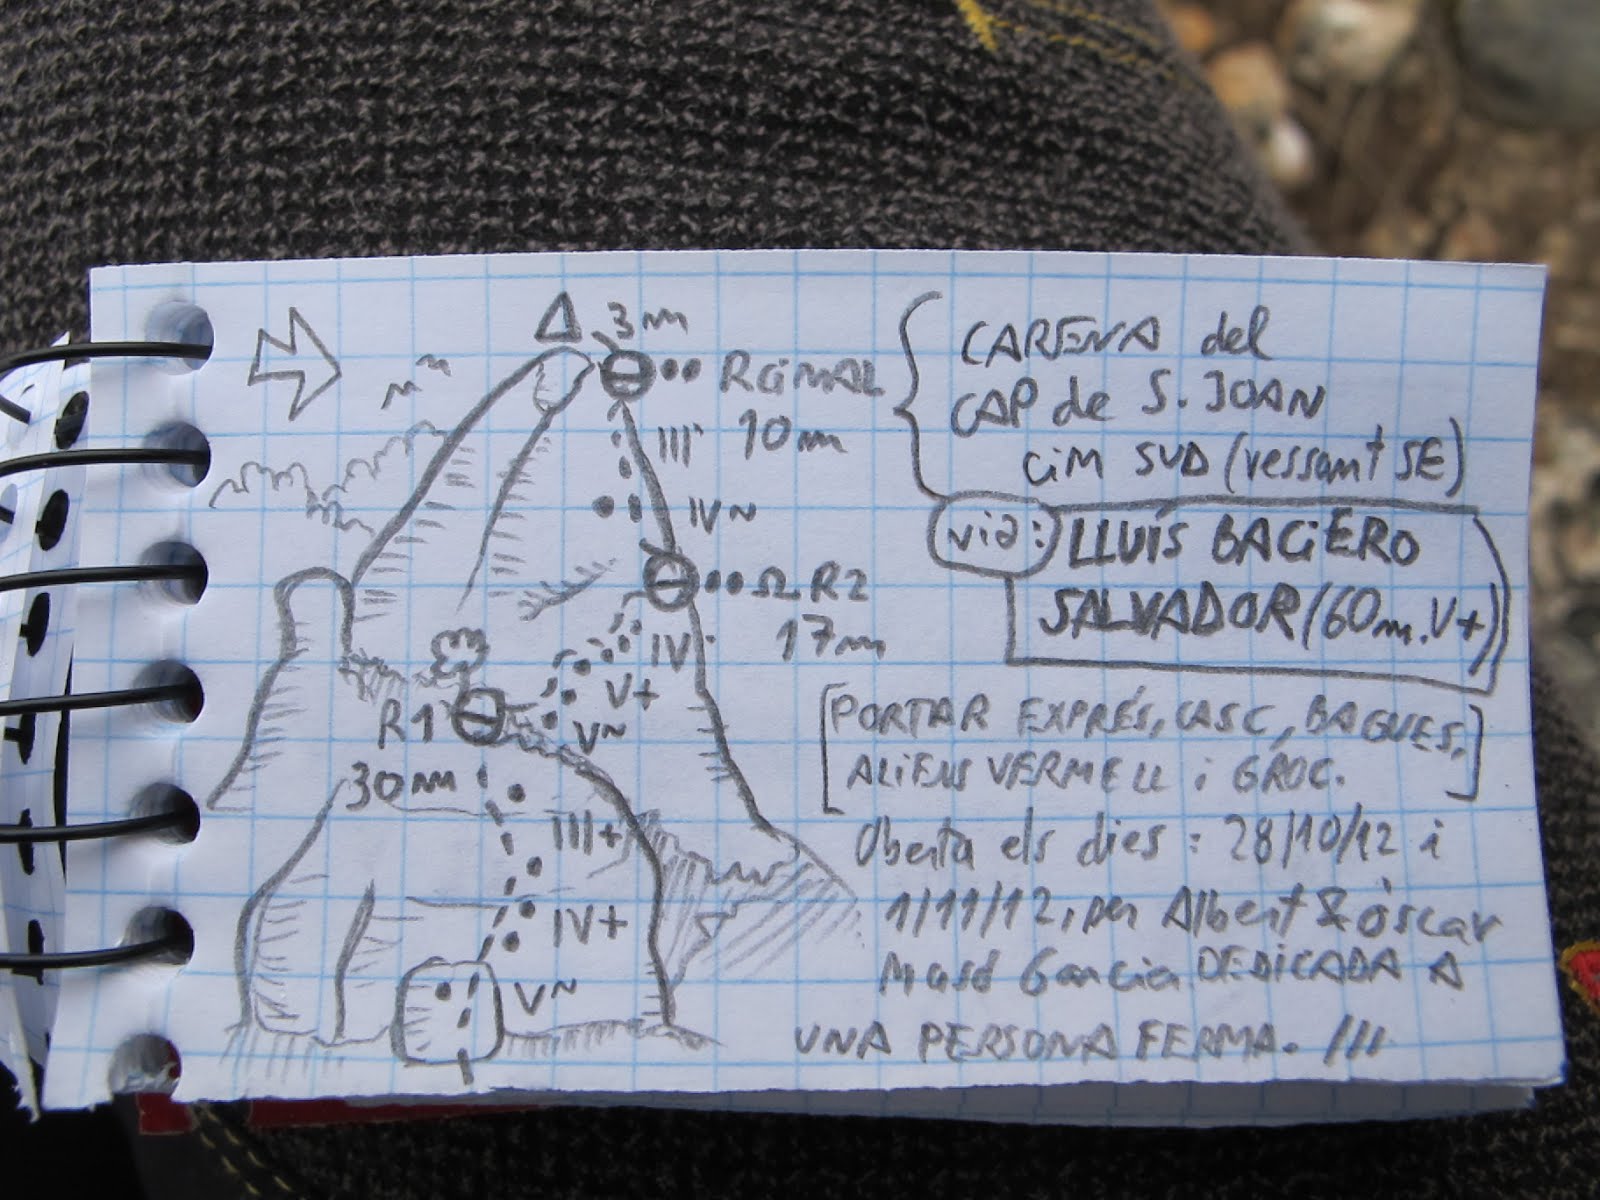 3m
R CiMAL
10m
III
IV~
R2
17m
IV
V+
V~
R1
30m
III+
IV+
V~
CARENA del
CAP de S. JOAN
CiM SUD (vessant SE)
via: LLUÍS BAGIERO
SALVADOR (60m. V+)
[PORTAR EXPRÉS, CASC, BAGUES,
ALIENS VERMELL i GROC.]
Oberta els dies: 28/10/12 i
1/11/12, per Albert & òscar
Masó Garcia DEDICADA A
UNA PERSONA FERMA. ///